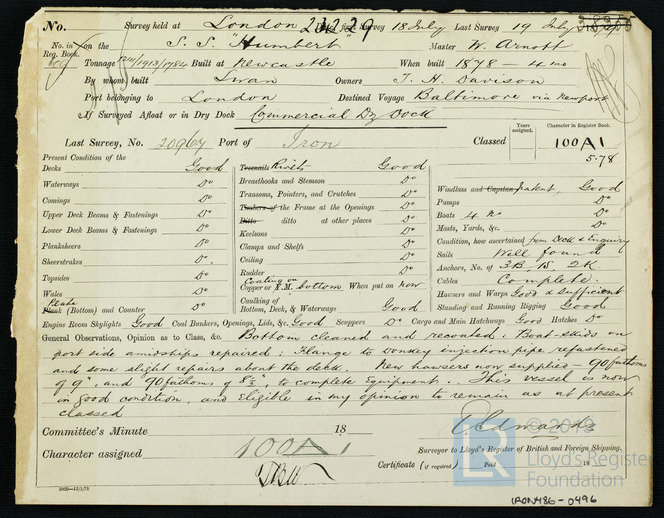 No. Survey held at London 23239 First Survey 18 July Last Survey 19 July
No. in Reg. Book. on the S. S. "Humbert" Master W. Arnott
Tonnage 1913/1784 Built at Newcastle When built 1878 - 4 mo
By whom built Swan Owners T. H. Davison
Port belonging to London Destined Voyage Baltimore via Newport
If Surveyed Afloat or in Dry Dock Commercial Dry Dock
Years assigned. Character in Register Book.
Last Survey, No. 20967 Port of Iron Classed 100A1
5.78
Present Condition of the
Decks Good
Waterways Do
Comings Do
Upper Deck Beams & Fastenings Do
Lower Deck Beams & Fastenings Do
Planksheers Do
Sheerstrakes Do
Topsides Do
Wales Do
Plank Plate (Bottom) and Counter Do
Treenails Rivets Good
Breasthooks and Stemson Do
Transoms, Pointers, and Crutches Do
Timbers of the Frame at the Openings Do
Ditto ditto at other places Do
Keelsons Do
Clamps and Shelfs Do
Ceiling Do
Rudder Do
Coating on
Copper or Y.M. bottom When put on now
Caulking of
Bottom, Deck, & Waterways Good
Windlass and Capstan patent, Good
Pumps Do
Boats 4 No Do
Masts, Yards, &c. Do
Condition, how ascertained from Deck & Enquiry
Sails Well found
Anchors, No. of 3B 1S 2K
Cables Complete
Hawsers and Warps Good & sufficient
Standing and Running Rigging Good
Engine Room Skylights Good Coal Bunkers, Openings, Lids, &c. Good Scuppers Do Cargo and Main Hatchways Good Hatches Do
General Observations, Opinion as to Class, &c. Bottom cleaned and recoated: Boat-skids on
port side amidships repaired: Flange to donkey injection pipe refastened
and some slight repairs about the deck. New hawsers now supplied - 90 fathoms
of 9", and 90 fathoms of 8½", to complete Equipment. This vessel is now
in good condition, and Eligible in my opinion to remain as at present
classed
Committee's Minute 18
Character assigned 100A1
Surveyor to Lloyd's Register of British and Foreign Shipping.
Certificate (if required) Paid 18
© 2018
LR
Lloyd's Register
Foundation
IRON486-0496